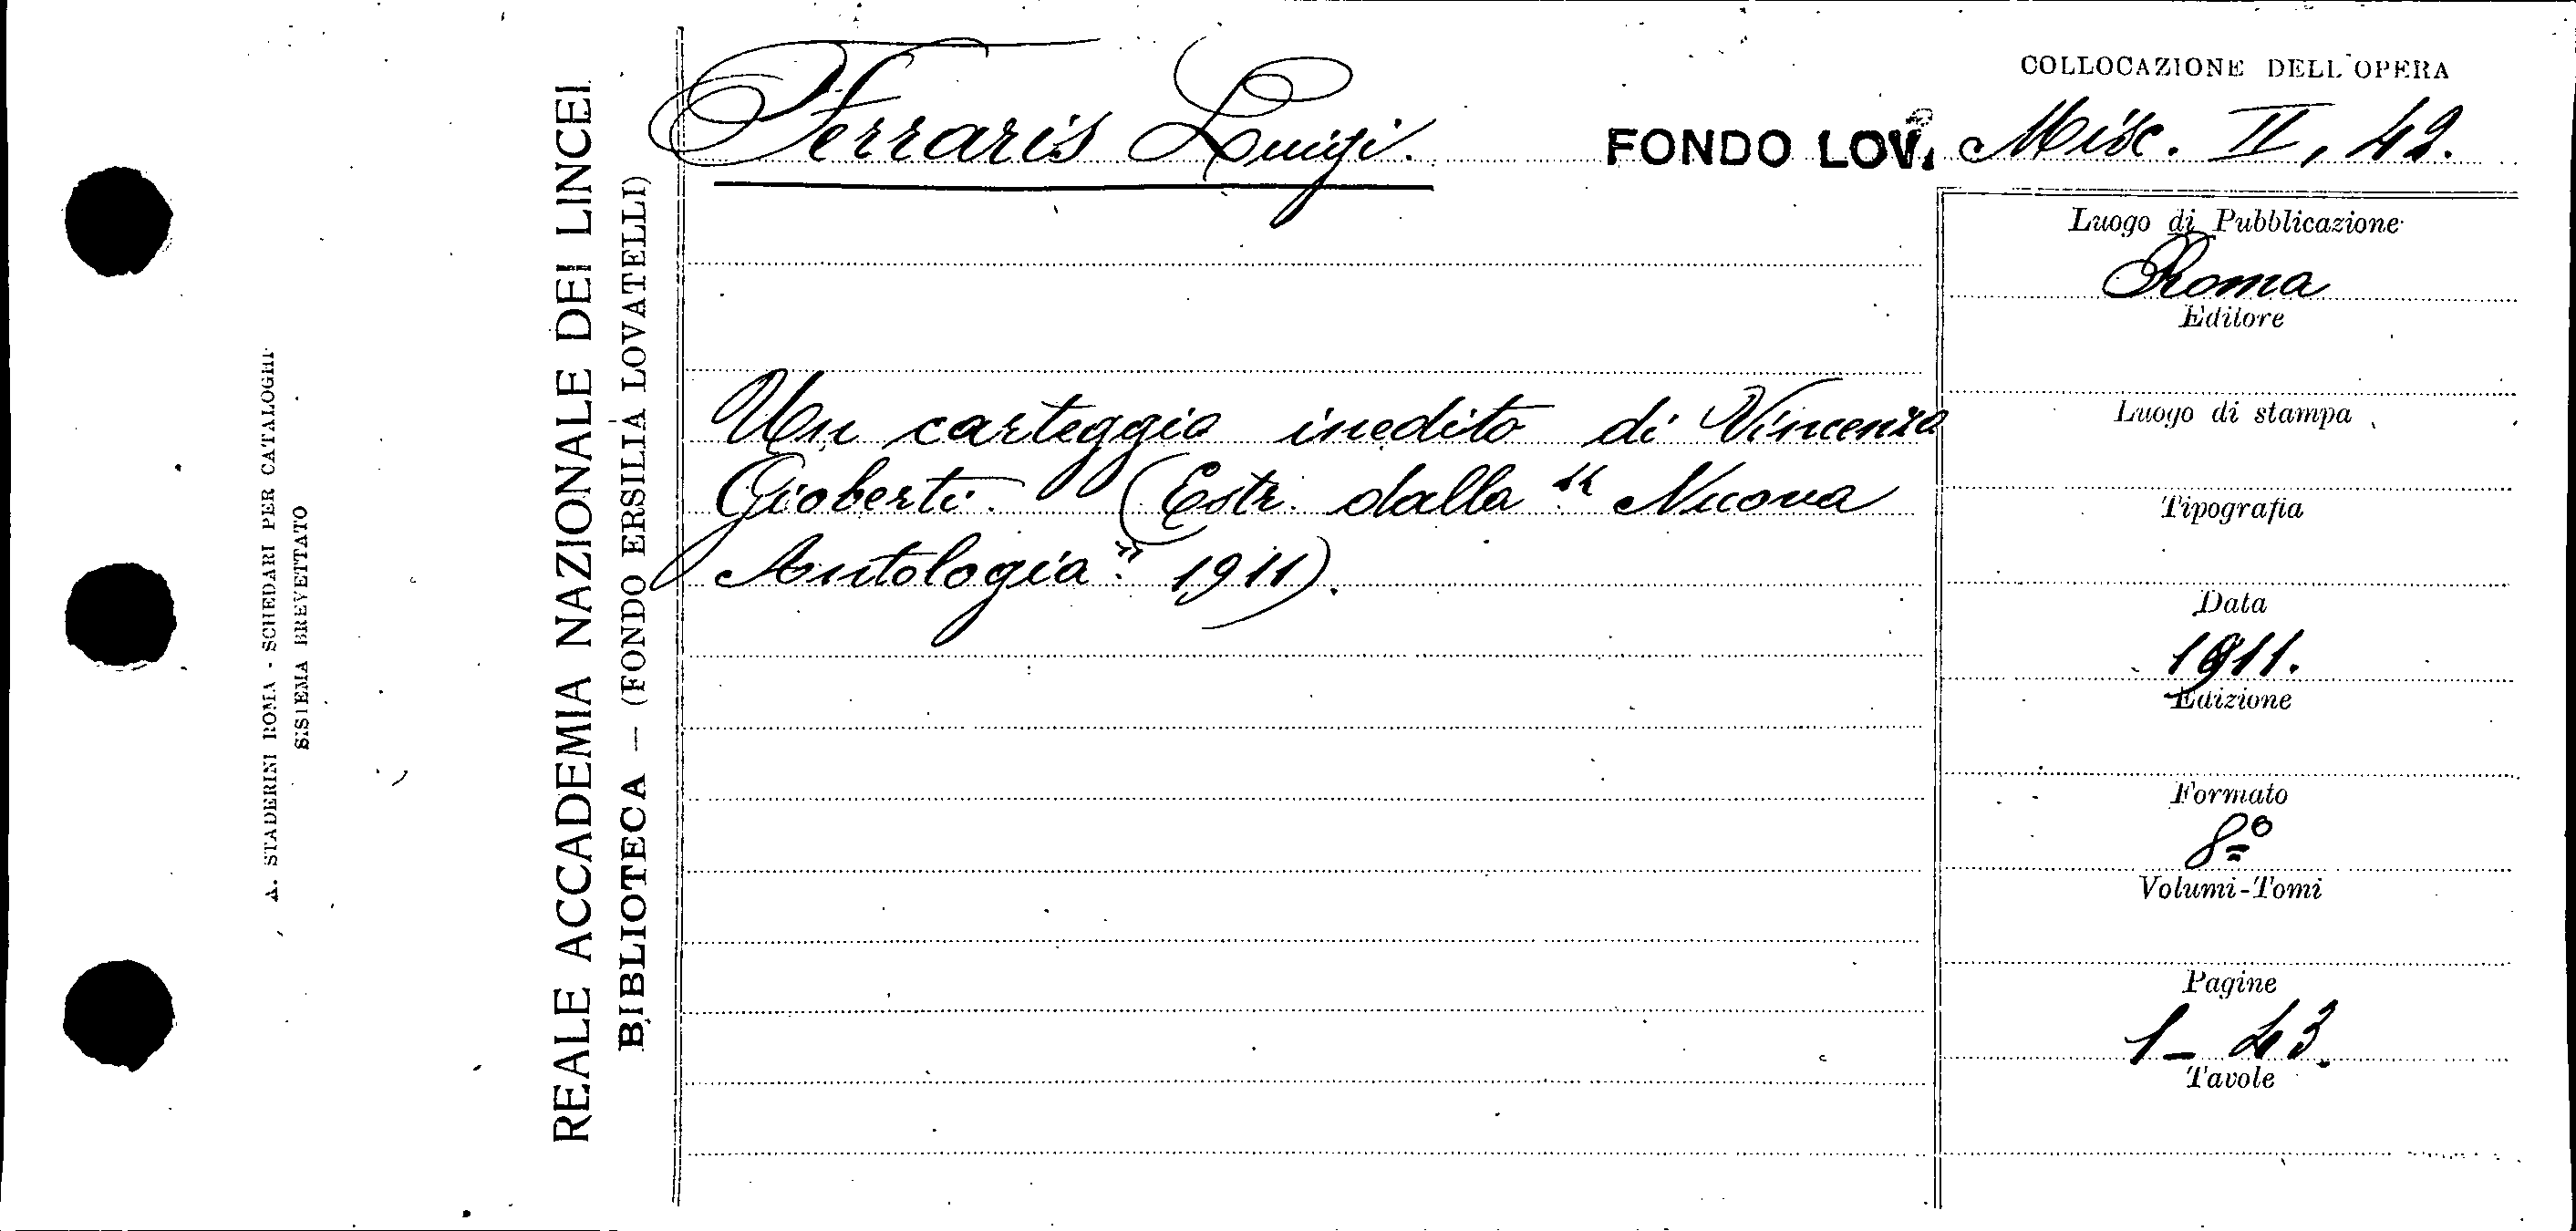 A. STADERINI ROMA - SCHEDARI PER CATALOGHI
SISTEMA BREVETTATO
REALE ACCADEMIA NAZIONALE DEI LINCEI
BIBLIOTECA — (FONDO ERSILIA LOVATELLI)
Ferraris Luigi.
FONDO LOV.
COLLOCAZIONE DELL'OPERA
Misc. II, 42.
Un carteggio inedito di Vincenzo
Gioberti. (Estr. dalla "Nuova
Antologia" 1911).
Luogo di Pubblicazione
Roma
Editore
Luogo di stampa
Tipografia
Data
1911.
Edizione
Formato
8º
Volumi-Tomi
Pagine
1-43.
Tavole